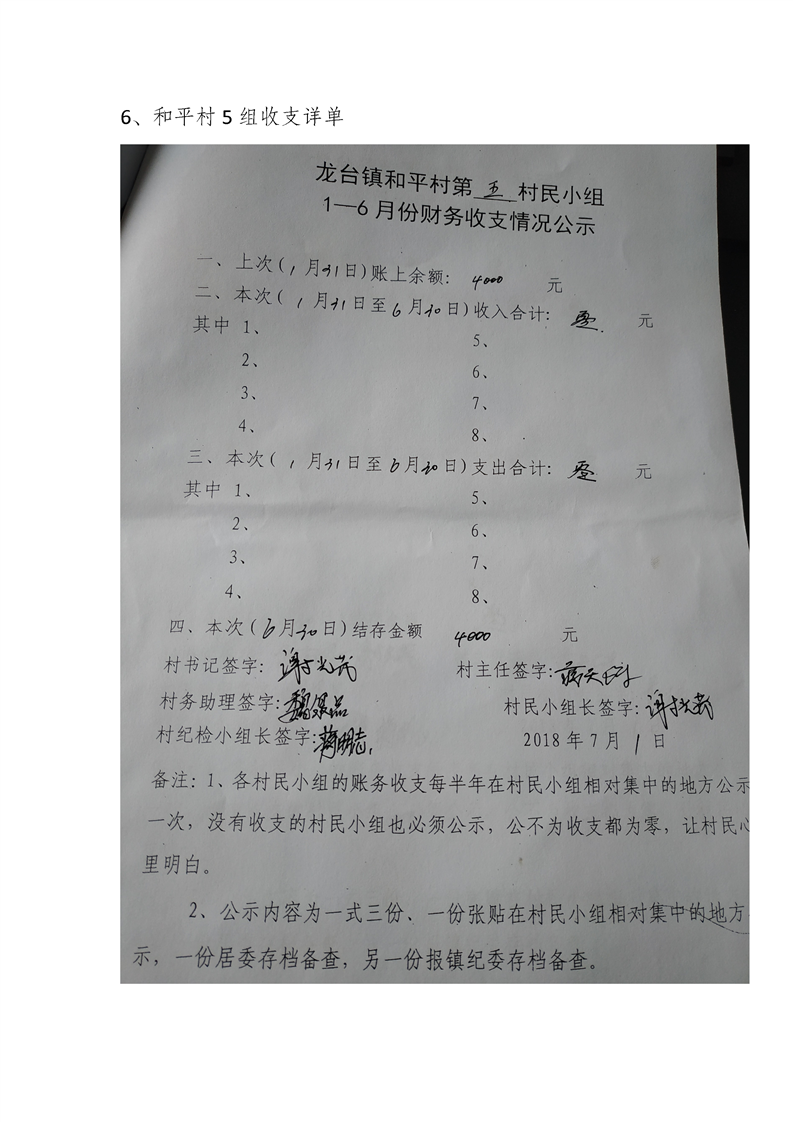 6、和平村 5 组收支详单
龙台镇和平村第 五 村民小组
1—6 月份财务收支情况公示
一、上次(1月31日)账上余额: 4000 元
二、本次(1月31日至6月30日)收入合计: 零 元
其中 1、 5、
2、 6、
3、 7、
4、 8、
三、本次(1月31日至6月30日)支出合计: 零 元
其中 1、 5、
2、 6、
3、 7、
4、 8、
四、本次(6月30日)结存金额 4000 元
村书记签字: 村主任签字:
村务助理签字: 村民小组长签字:
村纪检小组长签字: 2018 年 7 月 1 日
备注:1、各村民小组的账务收支每半年在村民小组相对集中的地方公示
一次,没有收支的村民小组也必须公示,公不为收支都为零,让村民心
里明白。
2、公示内容为一式三份、一份张贴在村民小组相对集中的地方
示,一份居委存档备查,另一份报镇纪委存档备查。